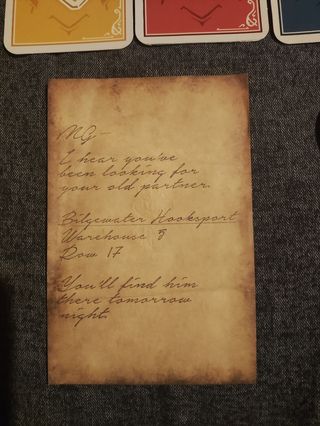 MG—
I hear you've
been looking for
your old partner.
Bilgewater Hooksport
Warehouse 8
Row 17
You'll find him
there tomorrow
night.